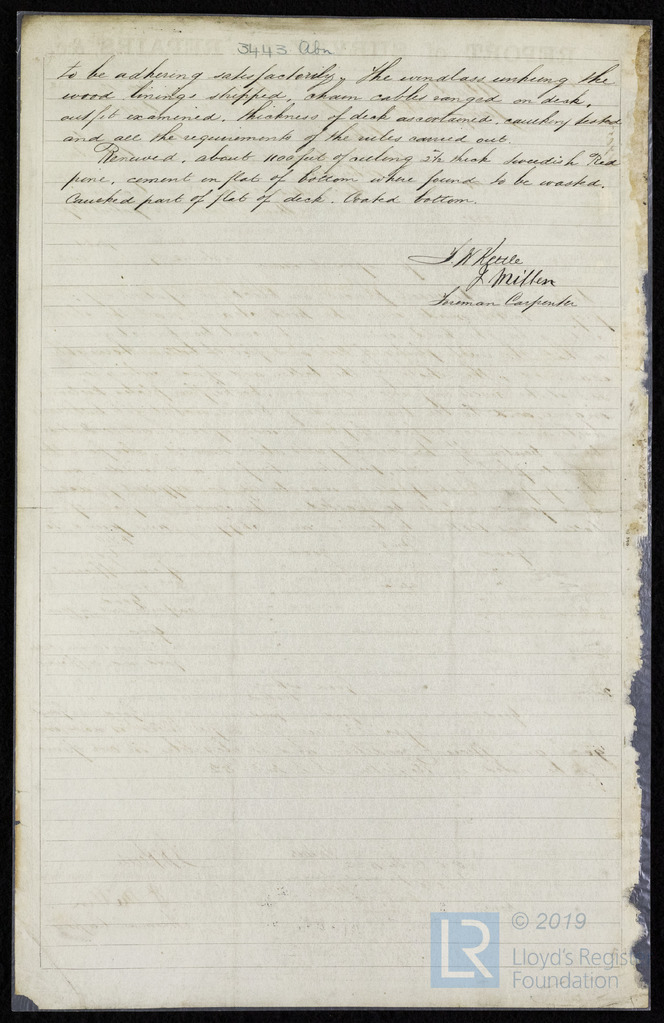 3443 Abn
to be adhering satisfactorily, the windlass unhung the
wood linings stripped, chain cables ranged on deck,
outfit examined, thickness of deck ascertained, caulking tested
and all the requirements of the rules carried out.
Renewed, about 1100 feet of ceiling 2½ thick Swedish Red
pine, cement on flat of bottom where found to be wasted.
Caulked part of flat of deck. Coated bottom.
J. Millen
Foreman Carpenter
© 2019
LR
Lloyd's Regist
Foundation